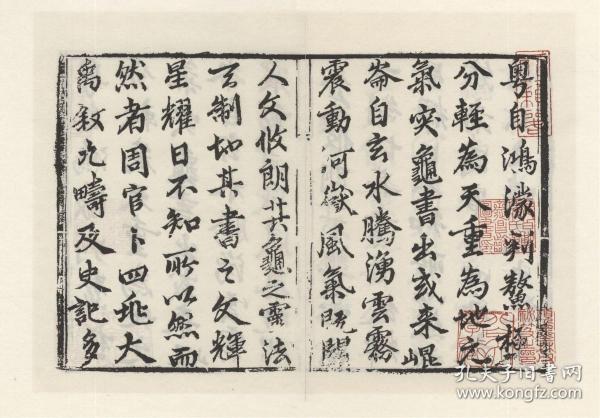 粤自鴻濛判鰲極
分輕為天重為地元
氣突龜書出或来崐
崙自玄水騰湧雲霧
震動河嶽風氣既開
人文攸朗其龜之靈法
天制地其書之文輝
星耀日不知所以然而
然者周官卜四兆大
禹叙九疇及史記多
孔夫子旧书网